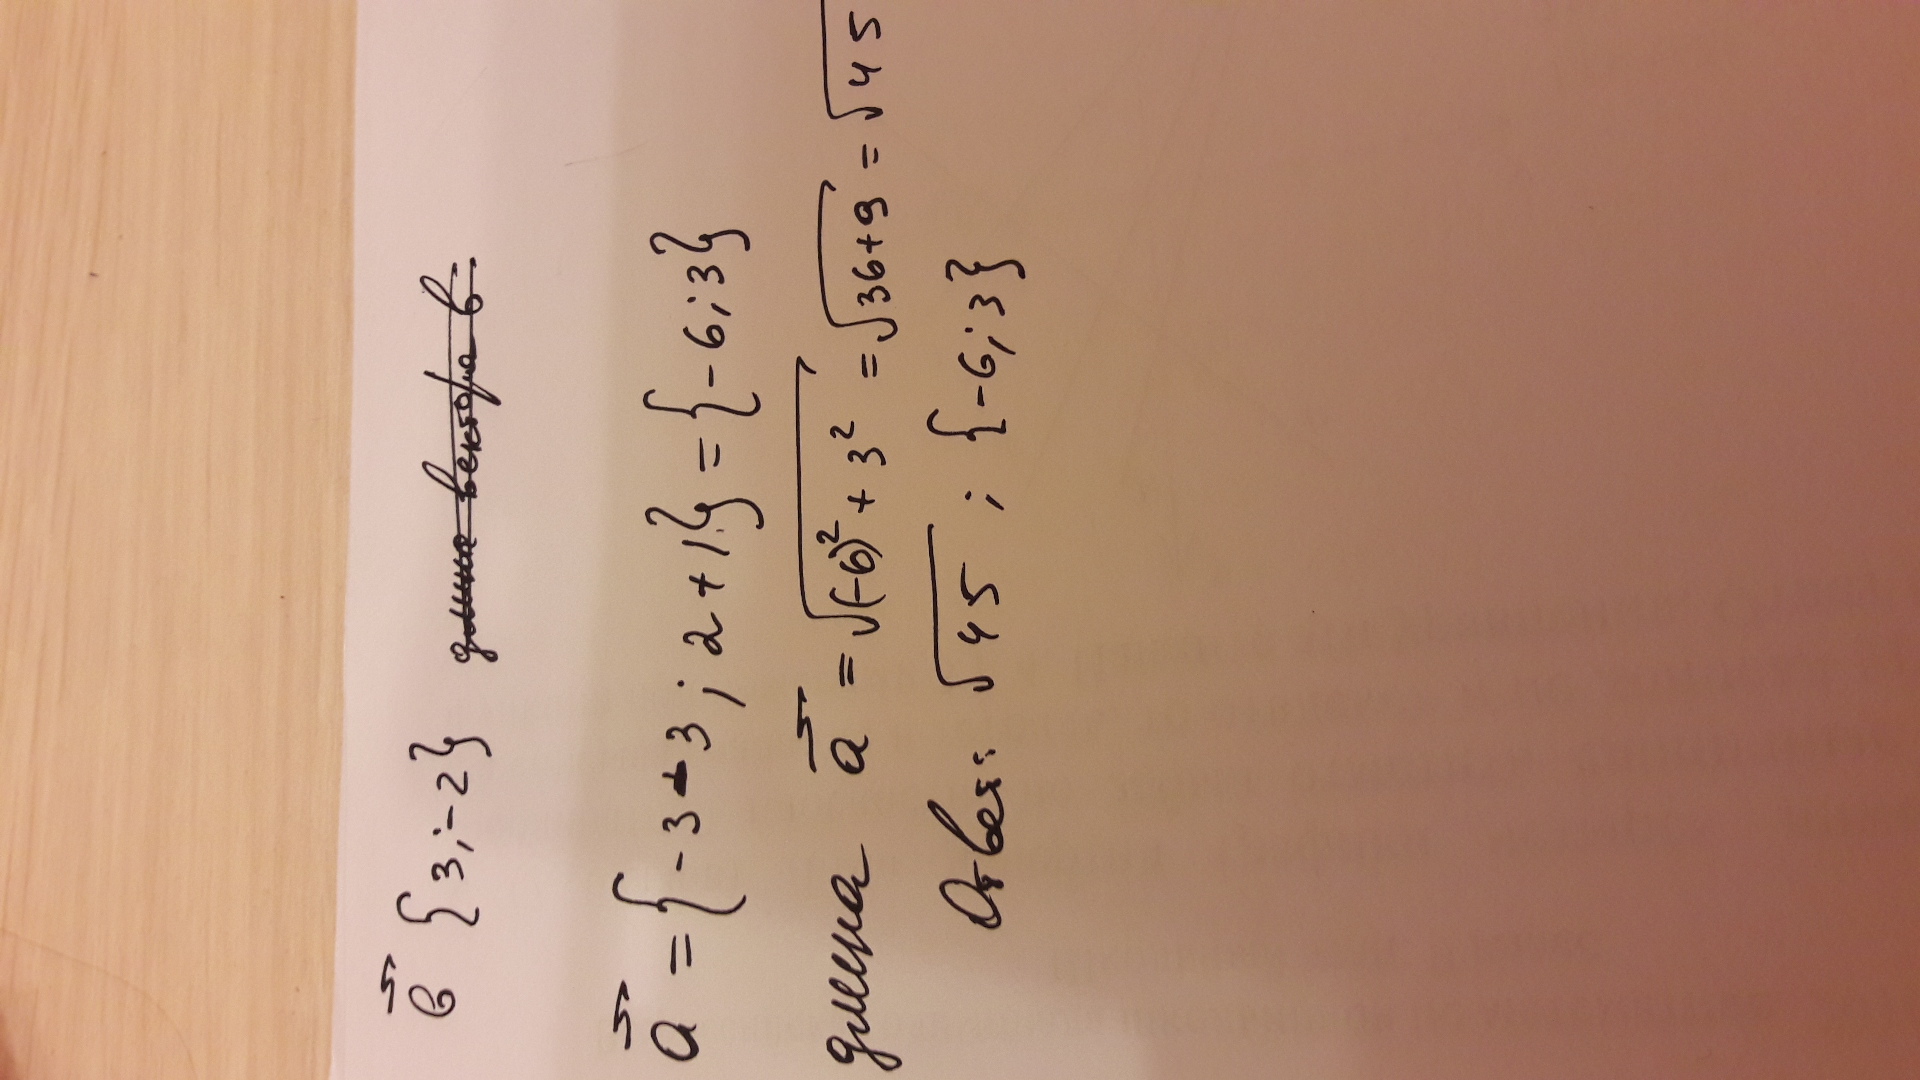 в⃗ {3; -2} длина вектора в
a⃗ = {-3-3; 2+1} = {-6; 3}
длина a⃗ = √(-6)² + 3² = √36+9 = √45
Ответ: √45 ; {-6; 3}